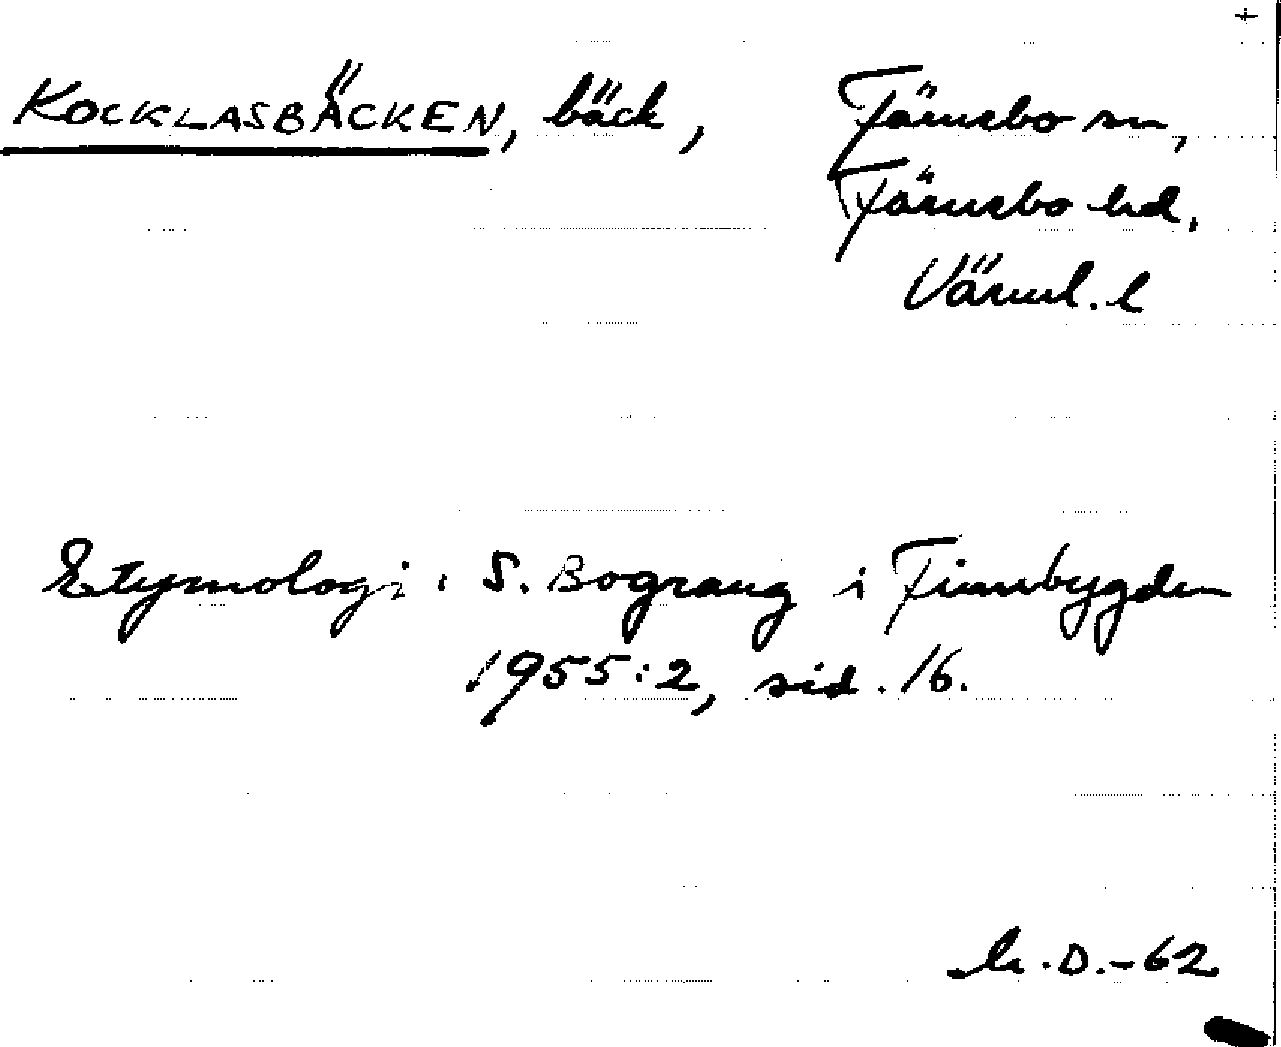 +
KOCKLASBÄCKEN, bäck, Färnebo sn,
Färnebo hd,
Värml. l
Etymologi: S. Bograng i Finnbygden
1955:2, sid. 16.
D.-62